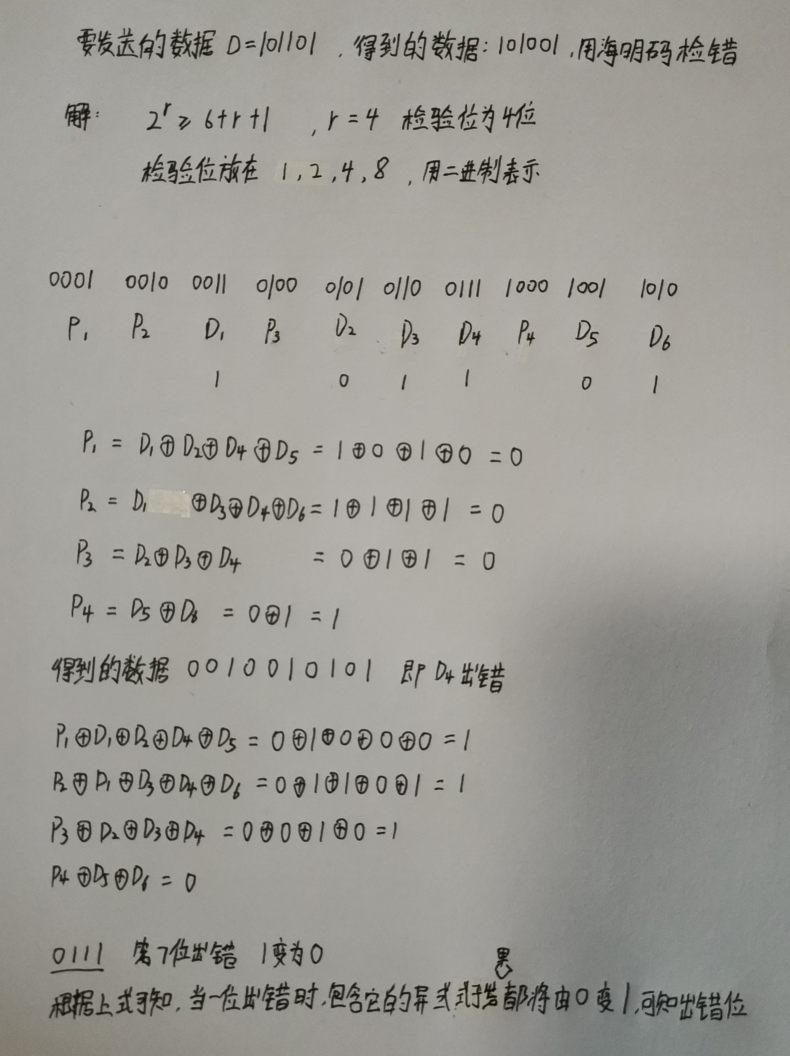 要发送的数据 D=101101 , 得到的数据: 101001 , 用海明码检错
解: 2^r ≥ 6+r+1 , r=4 检验位为4位
检验位放在 1, 2, 4, 8 , 用二进制表示
0001 0010 0011 0100 0101 0110 0111 1000 1001 1010
P₁ P₂ D₁ P₃ D₂ D₃ D₄ P₄ D₅ D₆
1 0 1 1 0 1
P₁ = D₁⊕D₂⊕D₄⊕D₅ = 1⊕0⊕1⊕0 = 0
P₂ = D₁ ⊕D₃⊕D₄⊕D₆ = 1⊕1⊕1⊕1 = 0
P₃ = D₂⊕D₃⊕D₄ = 0⊕1⊕1 = 0
P₄ = D₅⊕D₆ = 0⊕1 = 1
得到的数据 0010010101 即 D₄出错
P₁⊕D₁⊕D₂⊕D₄⊕D₅ = 0⊕1⊕0⊕0⊕0 = 1
P₂⊕D₁⊕D₃⊕D₄⊕D₆ = 0⊕1⊕1⊕0⊕1 = 1
P₃⊕D₂⊕D₃⊕D₄ = 0⊕0⊕1⊕0 = 1
P₄⊕D₅⊕D₆ = 0
0111 第7位出错 1变为0
果
根据上式可知, 当一位出错时, 包含它的异或式子结都将由0变1, 可知出错位